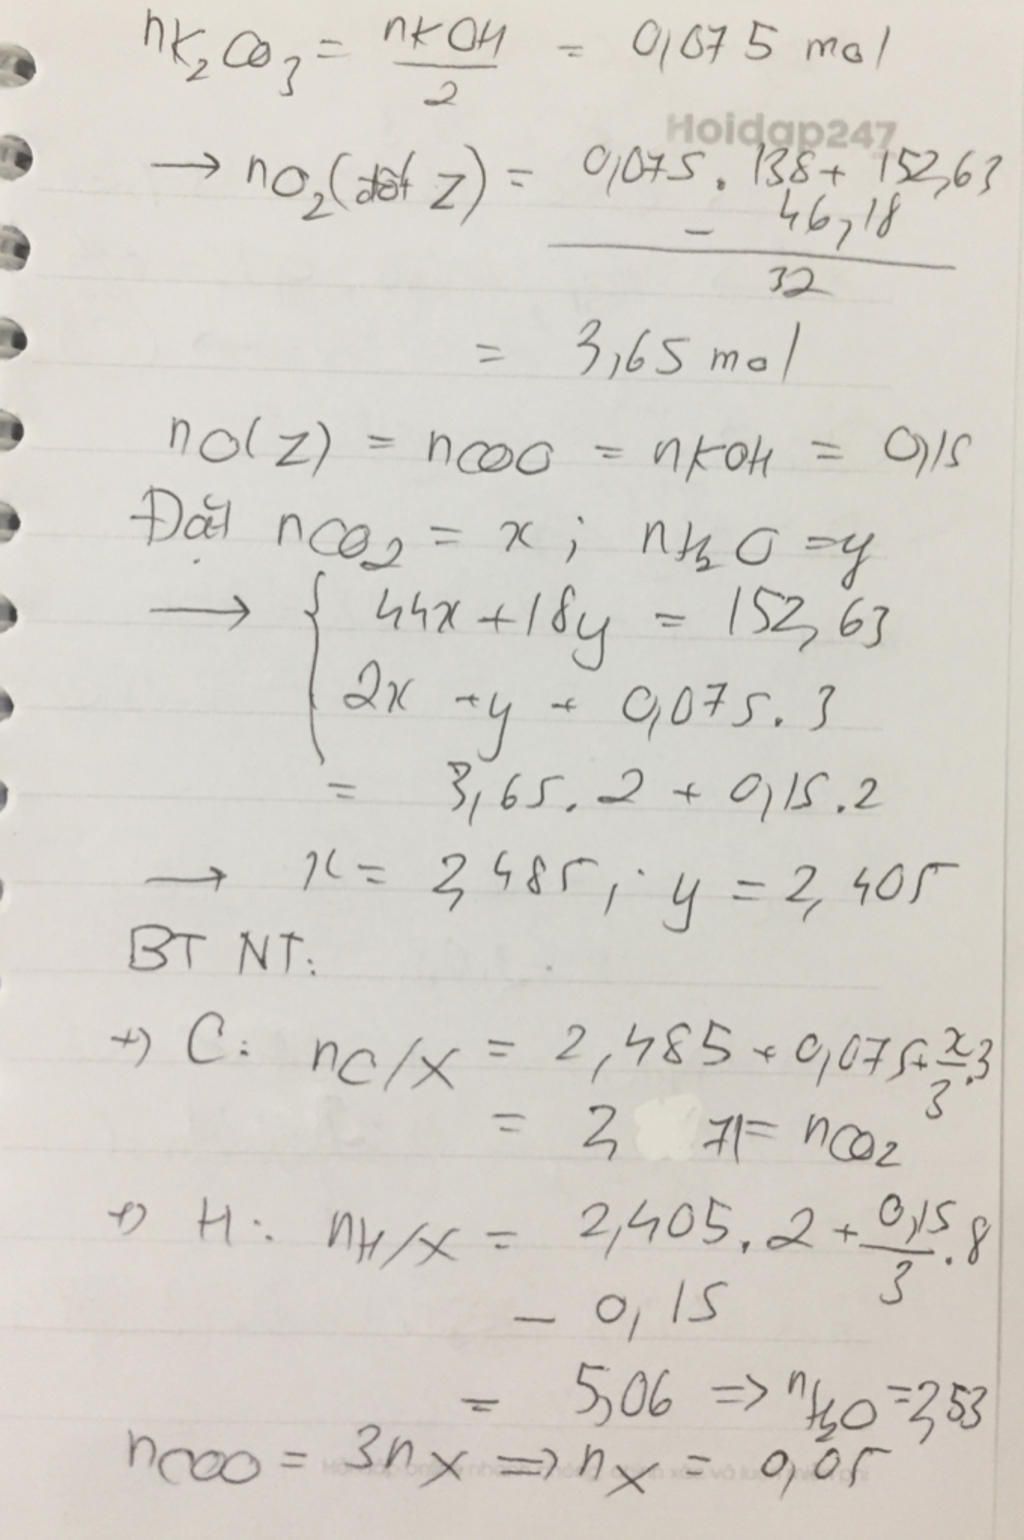 nK₂CO₃ = nKOH/2 = 0,075 mol
Hoidap247
→ nO₂(đốt Z) = (0,075 . 138 + 152,63 - 46,18)/32
= 3,65 mol
nO(Z) = nCOO = nKOH = 0,15
Đặt nCO₂ = x ; nH₂O = y
→ { 44x + 18y = 152,63
2x + y + 0,075.3
= 3,65.2 + 0,15.2
→ x = 2,485 ; y = 2,405
BT NT:
+) C: nC/X = 2,485 + 0,075 + x/3 .3
= 2, 71 = nCO₂
+) H: nH/X = 2,405.2 + 0,15/3 .8
- 0,15
= 5,06 => nH₂O = 2,53
nCOO = 3nX => nX = 0,05